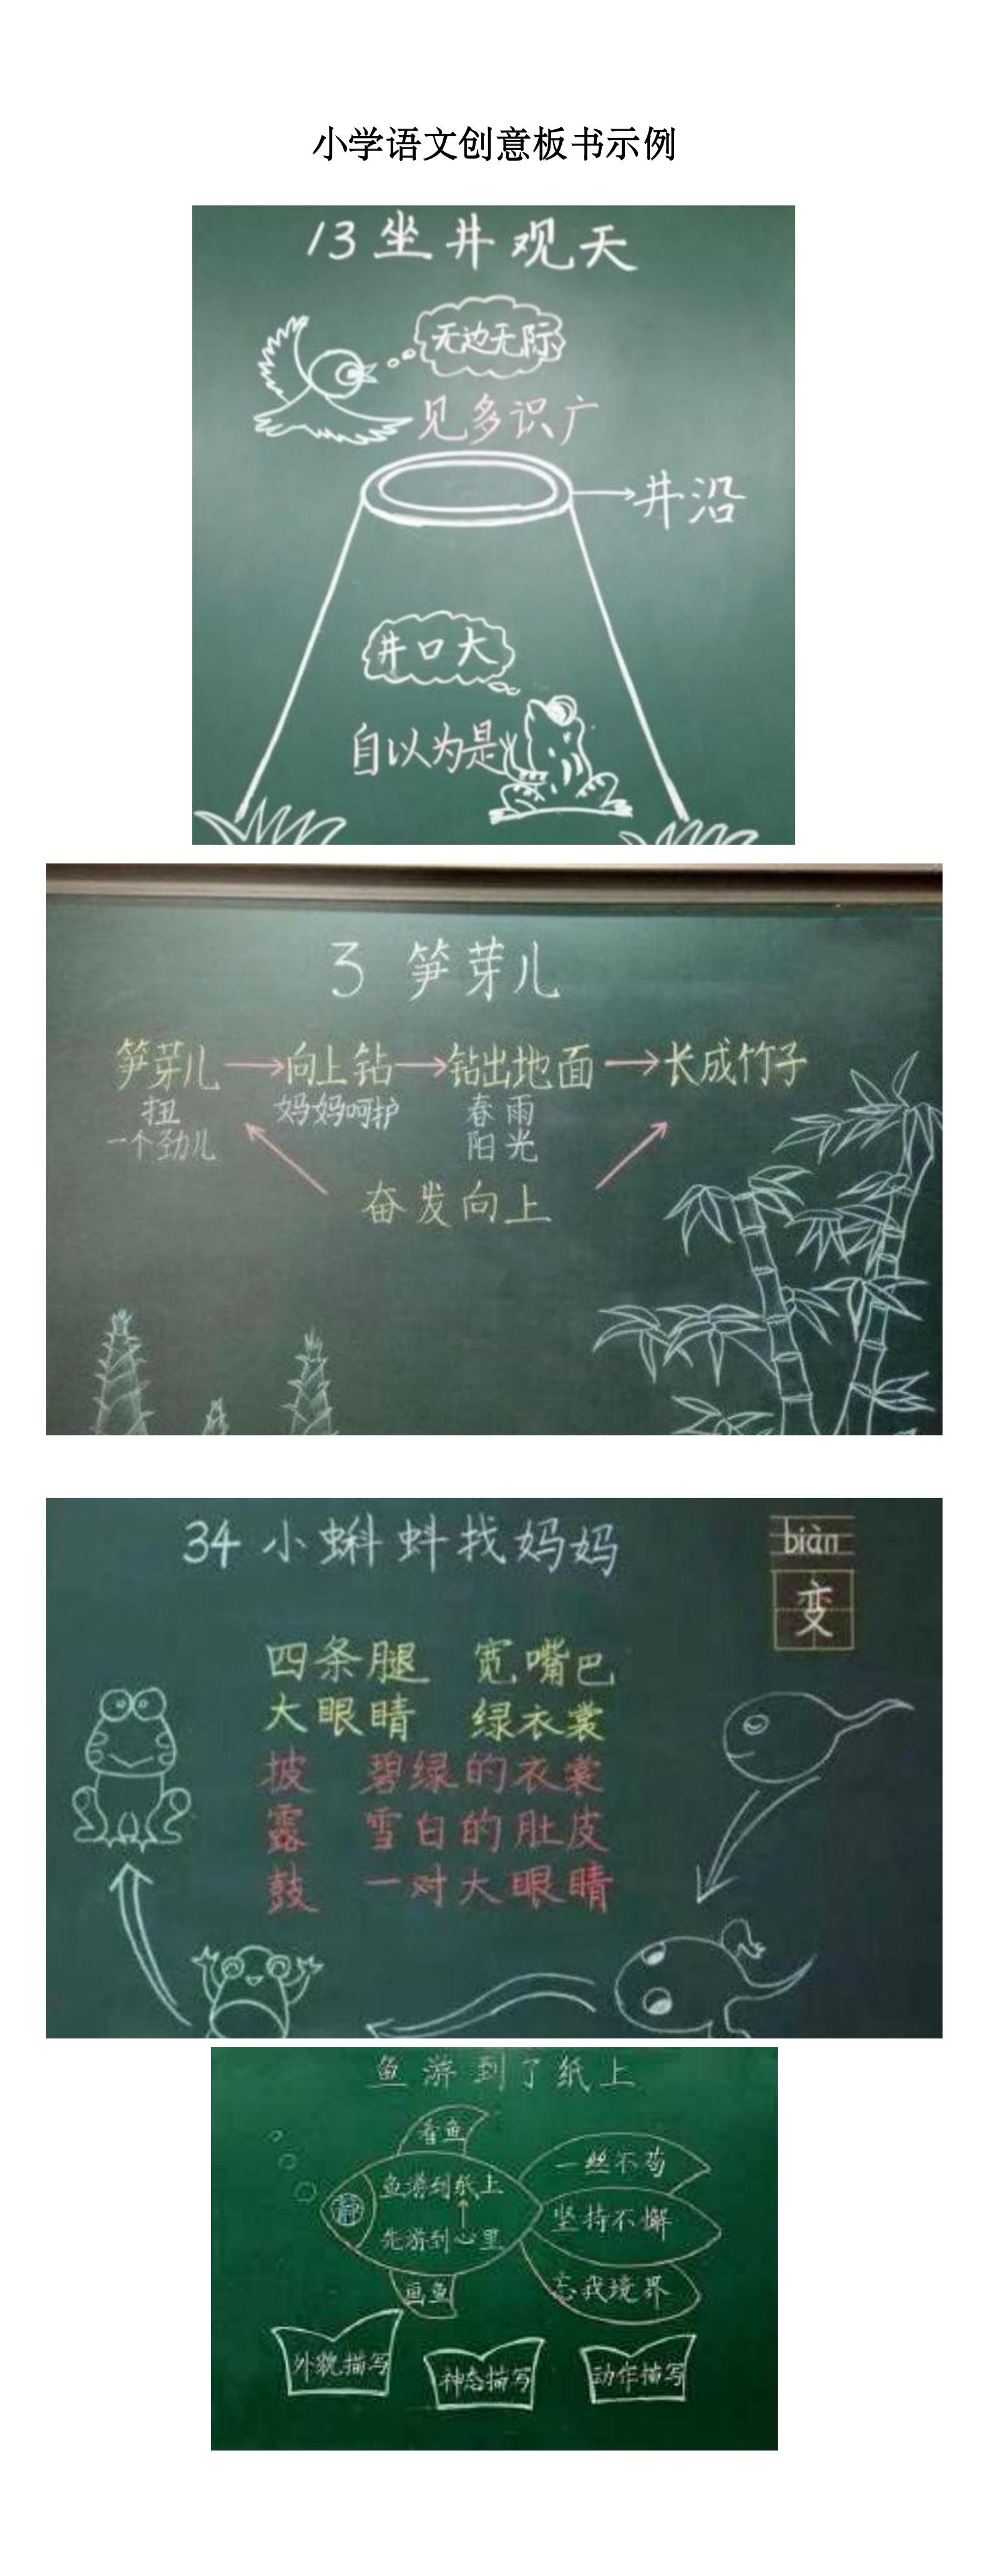 小学语文创意板书示例
13 坐井观天
无边无际
见多识广
井沿
井口大
自以为是
3 笋芽儿
笋芽儿 向上钻 钻出地面 长成竹子
扭 妈妈呵护 春雨
一个劲儿 阳光
奋发向上
34 小蝌蚪找妈妈
biàn
变
四条腿 宽嘴巴
大眼睛 绿衣裳
披 碧绿的衣裳
露 雪白的肚皮
鼓 一对大眼睛
鱼游到了纸上
看鱼
一丝不苟
鱼游到纸上
静
坚持不懈
先游到心里
画鱼
忘我境界
外貌描写 神态描写 动作描写